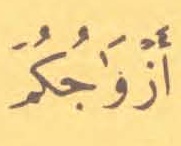 أَزْوَٰجُكُمْ